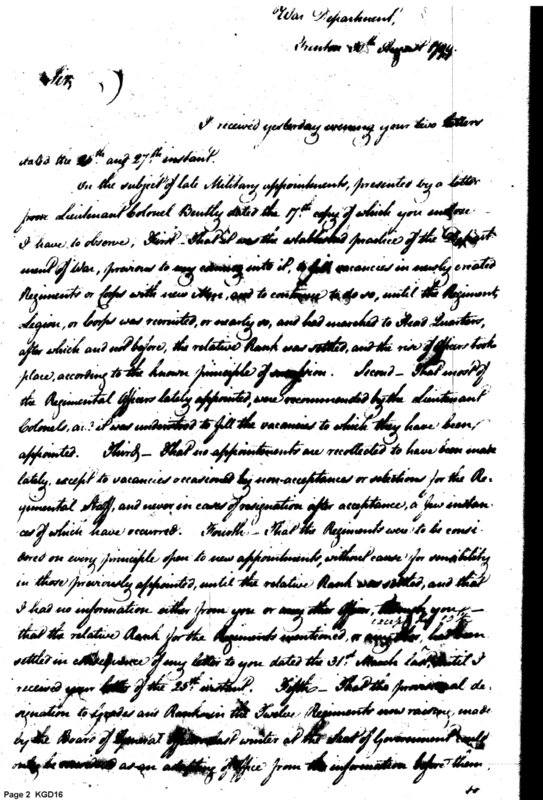 War Department,
Trenton 30th August 1799.
Sir,
I received yesterday evening your two letters
dated the and 27th instant.
On the subject of late Military appointments, presented by a letter
from Lieutenant Colonel Bently dated the 17th copy of which you enclose
I have to observe, First - That it was the established practice of the Depart
ment of War, previous to my coming into it, to fill vacancies in newly created
Regiments or Corps with new Men, and to continue to do so, until the Regiment,
Legion, or Corps was recruited, or nearly so, and had marched to Head Quarters,
after which and not before, the relative Rank was settled, and the rise of Officers took
place, according to the known principle of succession. Second - That most of
the Regimental Officers lately appointed, were recommended by the Lieutenant
Colonels, as it was understood to fill the vacancies to which they have been
appointed. Third - That no appointments are recollected to have been made
lately, except to vacancies occasioned by non-acceptances or selections for the Re-
gimental Staff, and never in cases of resignation after acceptance, a few instan-
ces of which have occurred. Fourth - That the Regiments were to be consi
dered on every principle open to new appointments, without cause for sensibility
in those previously appointed, until the relative Rank was settled, and that
I had no information either from you or any other Officer, through you -
that the relative Rank for the Regiments mentioned, or any other, had been
settled in consequence of my letter to you dated the 31st March last until I
received your letter of the 25th instant. Fifth - That the provisional de-
signation to Grades and Rank in the Twelve Regiments now raising, made
by the Board of General Officers last winter at the Seat of Government could
only be considered as an of Office from the information before them.
to
Page 2 KGD16